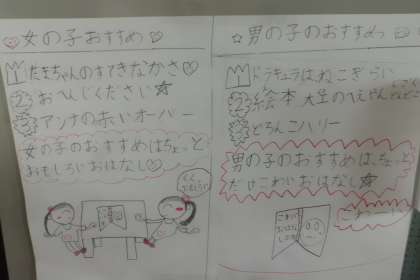 女の子おすすめ
1 たまちゃんのすてきなかさ
2 おへんじください
3 アンナの赤いオーバー
女の子のおすすめはちょっと
おもしろいおはなし
男の子のおすすめ
1 ドラキュラはねこぎらい
2 絵本
3 どろんこハリー
男の子のおすすめは、ちょっと
だけこわいおはなし
こわーい